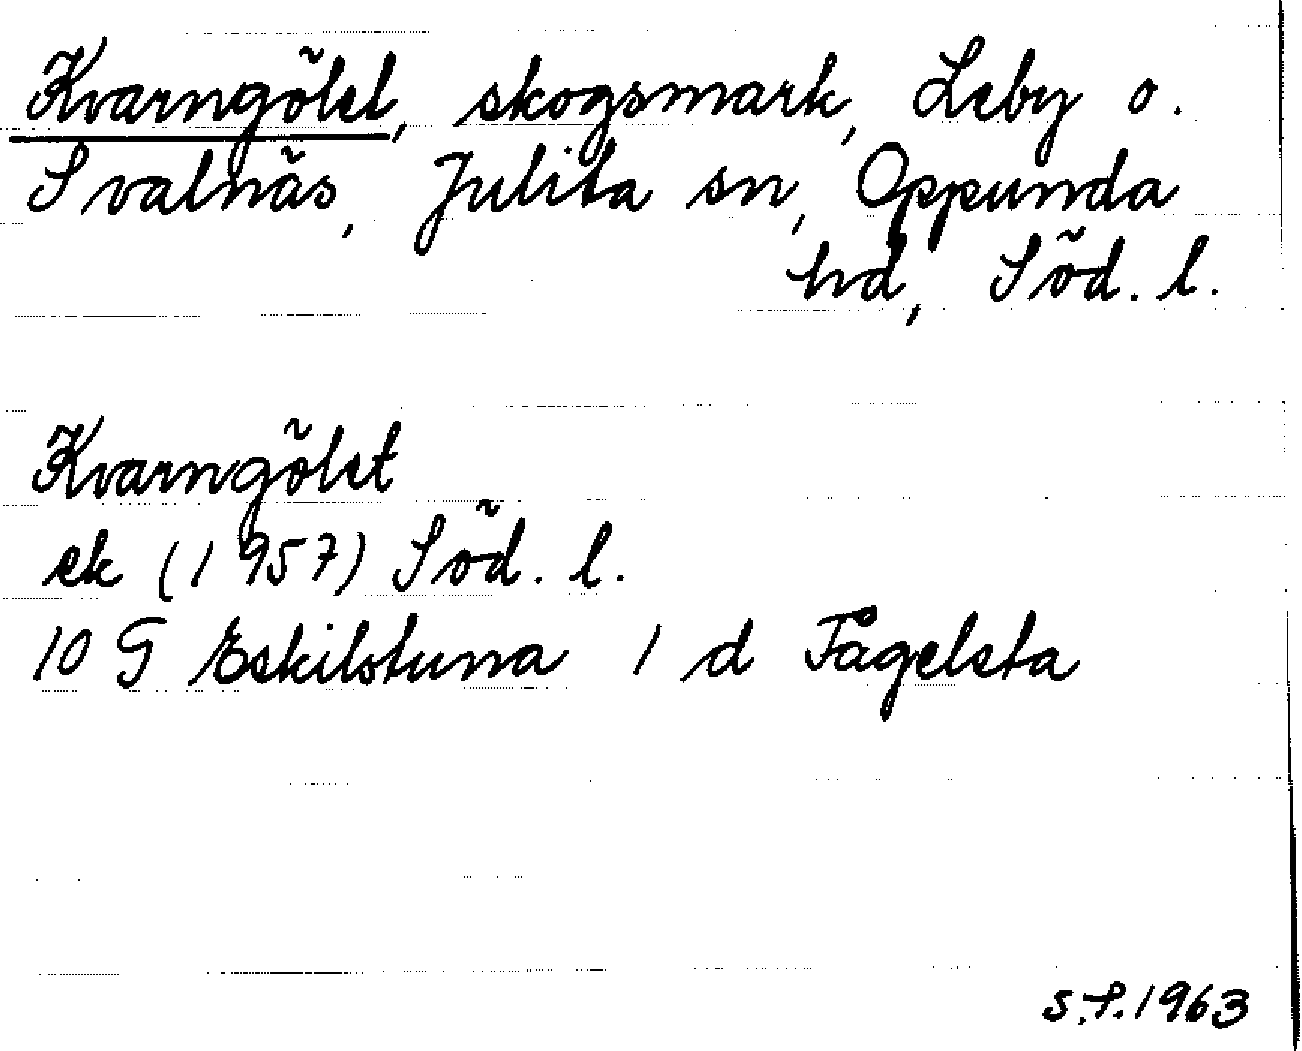 Kvarngölet, skogsmark, Leby o.
Svalnäs, Julita sn, Oppunda
hd, Söd. l.
Kvarngölet
ek (1957) Söd. l.
10 G Eskilstuna 1 d Fågelsta
S.P. 1963